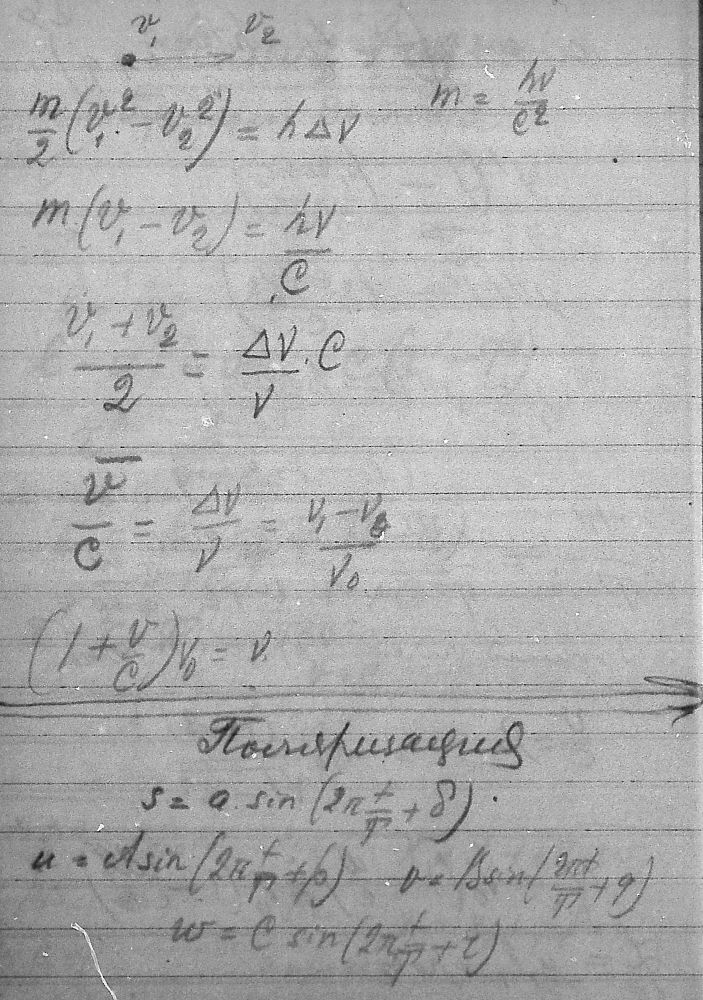 v₁ v₂
m/2 (v₁² − v₂²) = hΔν m = hν/c²
m(v₁ − v₂) = hν/C
(v₁ + v₂)/2 = Δν/ν · C
v̅/C = Δν/ν = (ν₁ − ν₂)/ν₀
(1 + v/C)ν₀ = ν
Поляризация
s = a sin(2π t/T + δ).
u = A sin(2π t/T + p) v = B sin(2πt/T + q)
w = C sin(2π t/T + r)